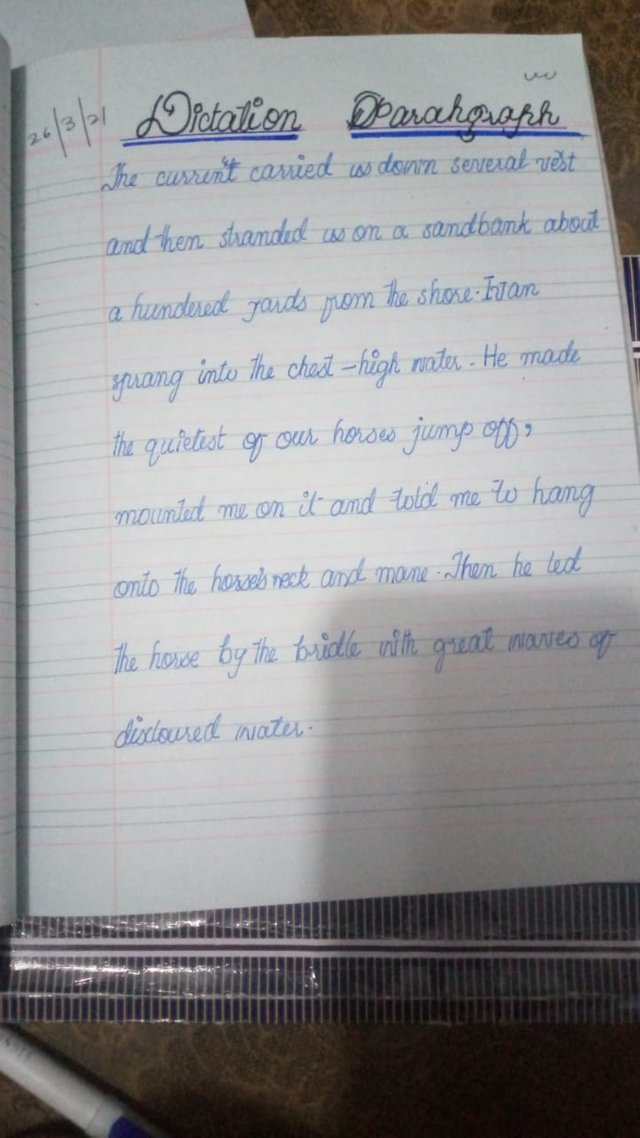 26/3/21
Dictation Parahgraph
The current carried us down several vest
and then stranded us on a sandbank about
a hundered yards from the shore. Ivan
sprang into the chest-high water. He made
the quietest of our horses jump off,
mounted me on it and told me to hang
onto the horse's neck and mane. Then he led
the horse by the bridle with great waves of
discloured water.